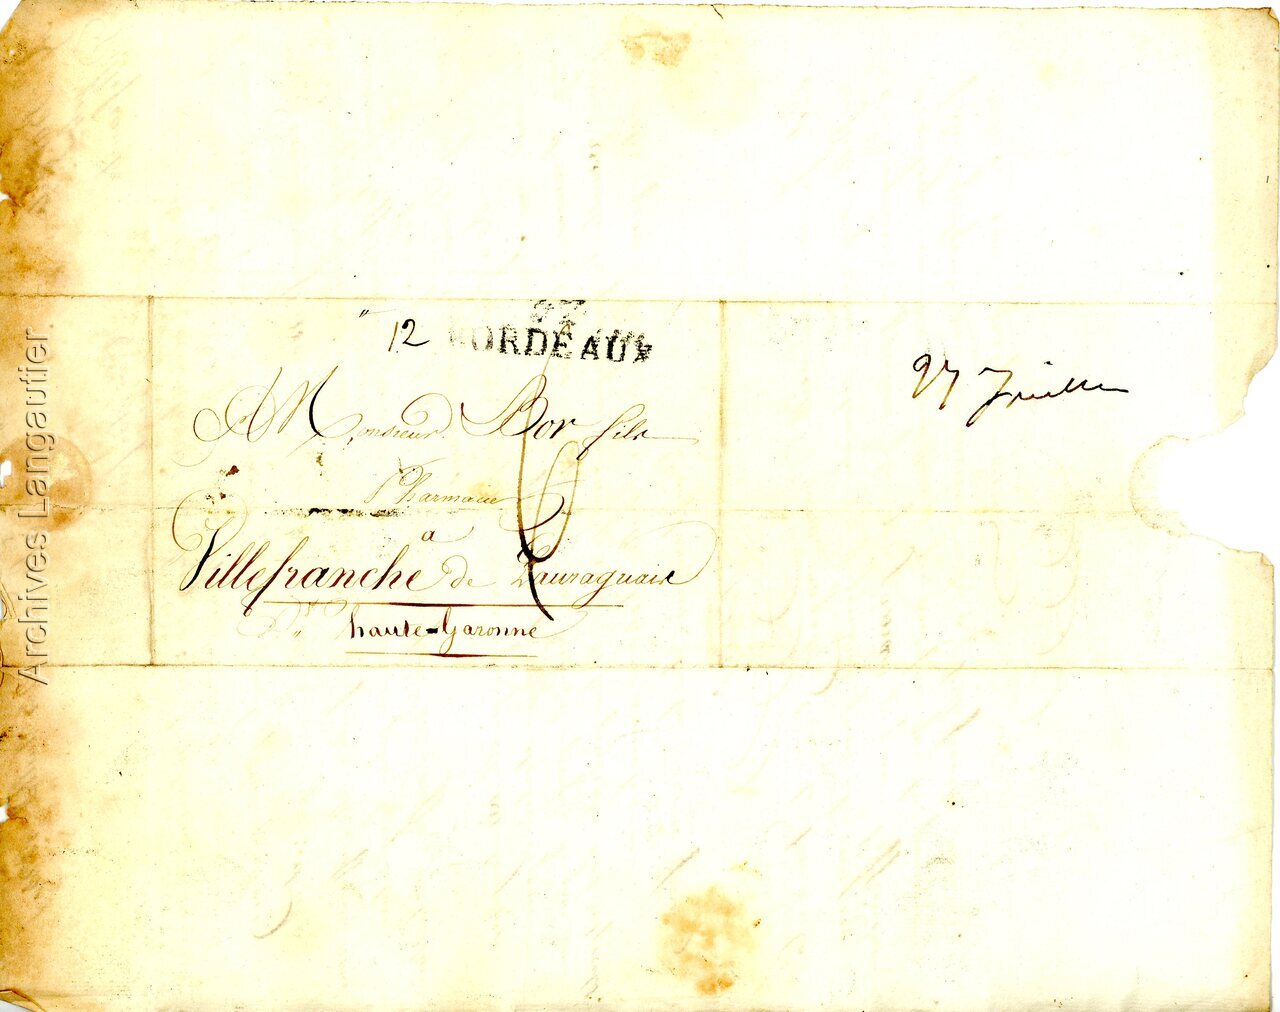 12 BORDEAUX
A Monsieur Bor fils
Pharmacien
a
Villefranche de Lauraguais
haute-Garonne
27 Juillet
Archives Langautier